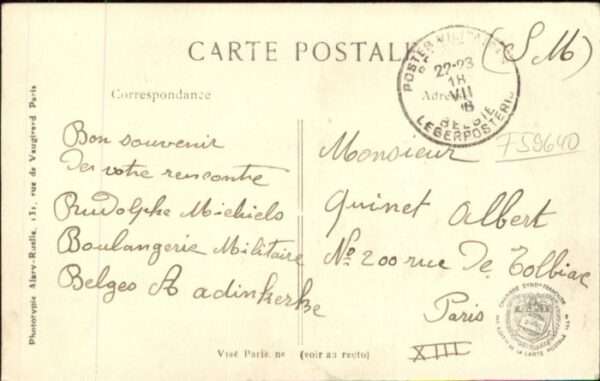 CARTE POSTALE
(S.M)
22-23
18
VII
BELGIE
LEGERPOSTERIJ
Correspondance
759640
Bon souvenir
des votre rencontre
Rudolphe Michiels
Boulangerie Militaire
Belges A adinkerke
Monsieur
Quinet Albert
No 200 rue De Tolbiac
Paris
XIII
Visé Paris no (voir au recto)
Phototypie Alary-Ruelle, 131, rue de Vaugirard Paris